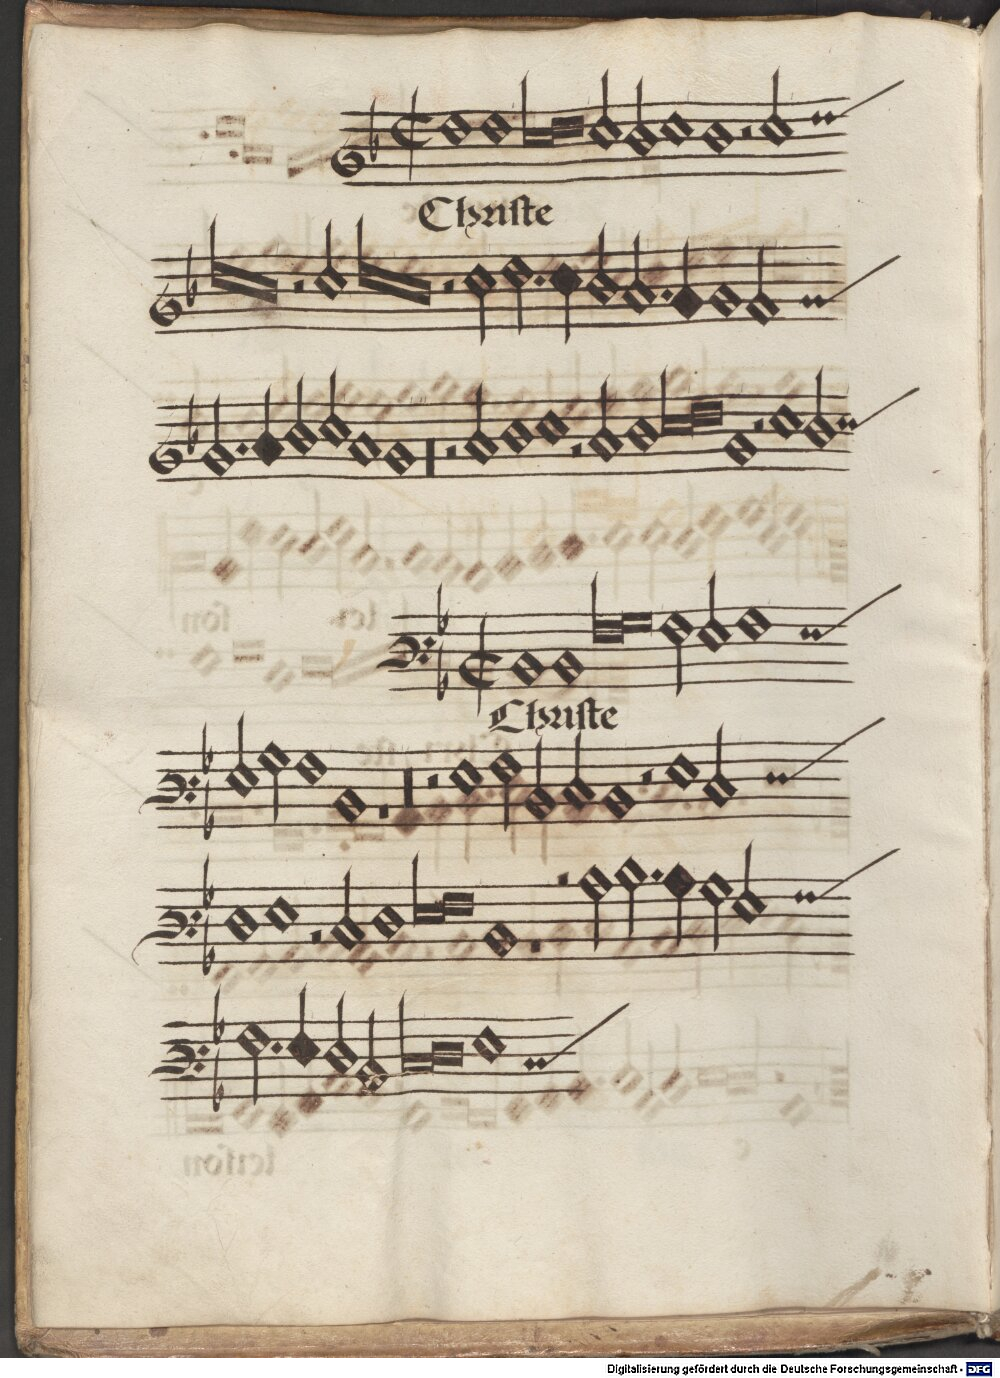 Christe
Christe
Digitalisierung gefördert durch die Deutsche Forschungsgemeinschaft - DFG